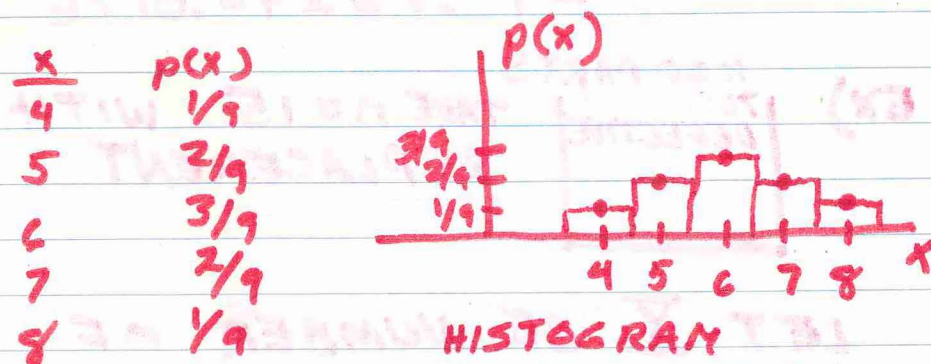 x p(x)
4 1/9
5 2/9
6 3/9
7 2/9
8 1/9
p(x)
3/9
2/9
1/9
4 5 6 7 8 x
HISTOGRAM